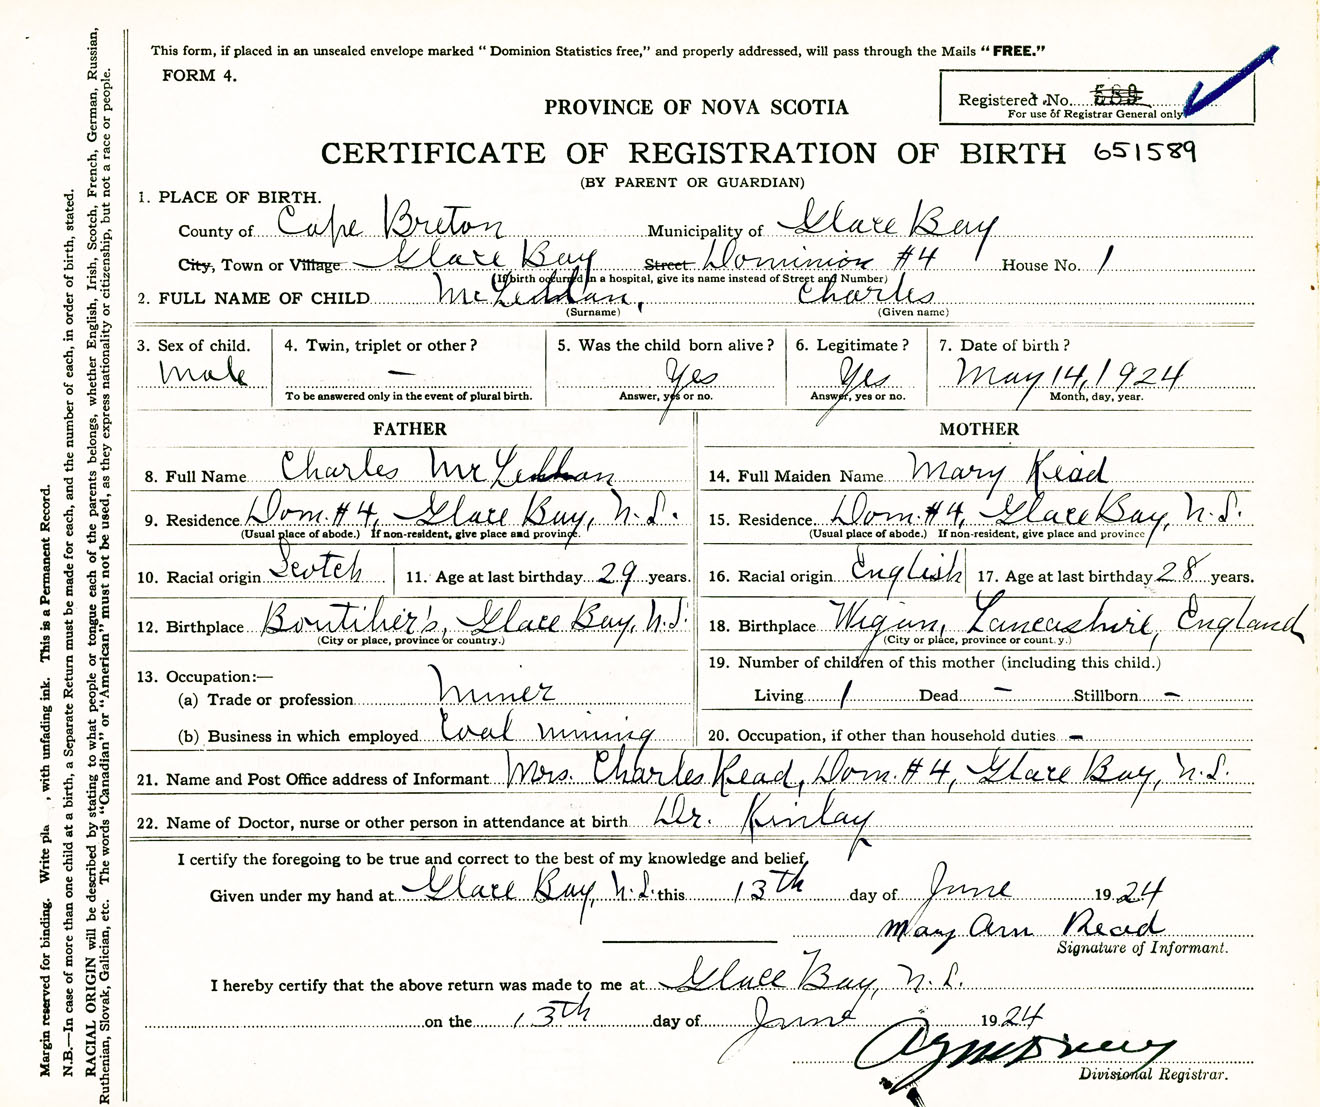 This form, if placed in an unsealed envelope marked "Dominion Statistics free," and properly addressed, will pass through the Mails "FREE."
FORM 4.
Registered No.
For use of Registrar General only
PROVINCE OF NOVA SCOTIA
CERTIFICATE OF REGISTRATION OF BIRTH 651589
(BY PARENT OR GUARDIAN)
1. PLACE OF BIRTH.
County of Cape Breton Municipality of Glace Bay
City, Town or Village Glace Bay Street Dominion #4 House No. 1
(If birth occurred in a hospital, give its name instead of Street and Number)
2. FULL NAME OF CHILD McLennan, Charles
(Surname) (Given name)
3. Sex of child. 4. Twin, triplet or other? 5. Was the child born alive? 6. Legitimate? 7. Date of birth?
Male — Yes Yes May 14, 1924
To be answered only in the event of plural birth. Answer, yes or no. Answer, yes or no. Month, day, year.
FATHER MOTHER
8. Full Name Charles McLennan 14. Full Maiden Name Mary Read
9. Residence Dom. #4, Glace Bay, N.S. 15. Residence Dom. #4, Glace Bay, N.S.
(Usual place of abode.) If non-resident, give place and province. (Usual place of abode.) If non-resident, give place and province
10. Racial origin Scotch 11. Age at last birthday 29 years. 16. Racial origin English 17. Age at last birthday 28 years.
12. Birthplace Boutilier's, Glace Bay, N.S. 18. Birthplace Wigan, Lancashire, England
(City or place, province or country.) (City or place, province or count.y.)
13. Occupation:— 19. Number of children of this mother (including this child.)
(a) Trade or profession Miner Living 1 Dead — Stillborn —
(b) Business in which employed Coal mining 20. Occupation, if other than household duties —
21. Name and Post Office address of Informant Mrs. Charles Read, Dom. #4, Glace Bay, N.S.
22. Name of Doctor, nurse or other person in attendance at birth Dr. Kinlay
I certify the foregoing to be true and correct to the best of my knowledge and belief.
Given under my hand at Glace Bay, N.S. this 13th day of June 1924
Mary Ann Read
Signature of Informant.
I hereby certify that the above return was made to me at Glace Bay, N.S.
on the 13th day of June 1924
Divisional Registrar.
Margin reserved for binding. Write pla , with unfading ink. This is a Permanent Record.
N.B.—In case of more than one child at a birth, a Separate Return must be made for each, and the number of each, in order of birth, stated.
RACIAL ORIGIN will be described by stating to what people or tongue each of the parents belongs, whether English, Irish, Scotch, French, German, Russian,
Ruthenian, Slovak, Galician, etc. The words "Canadian" or "American" must not be used, as they express nationality or citizenship, but not a race or people.